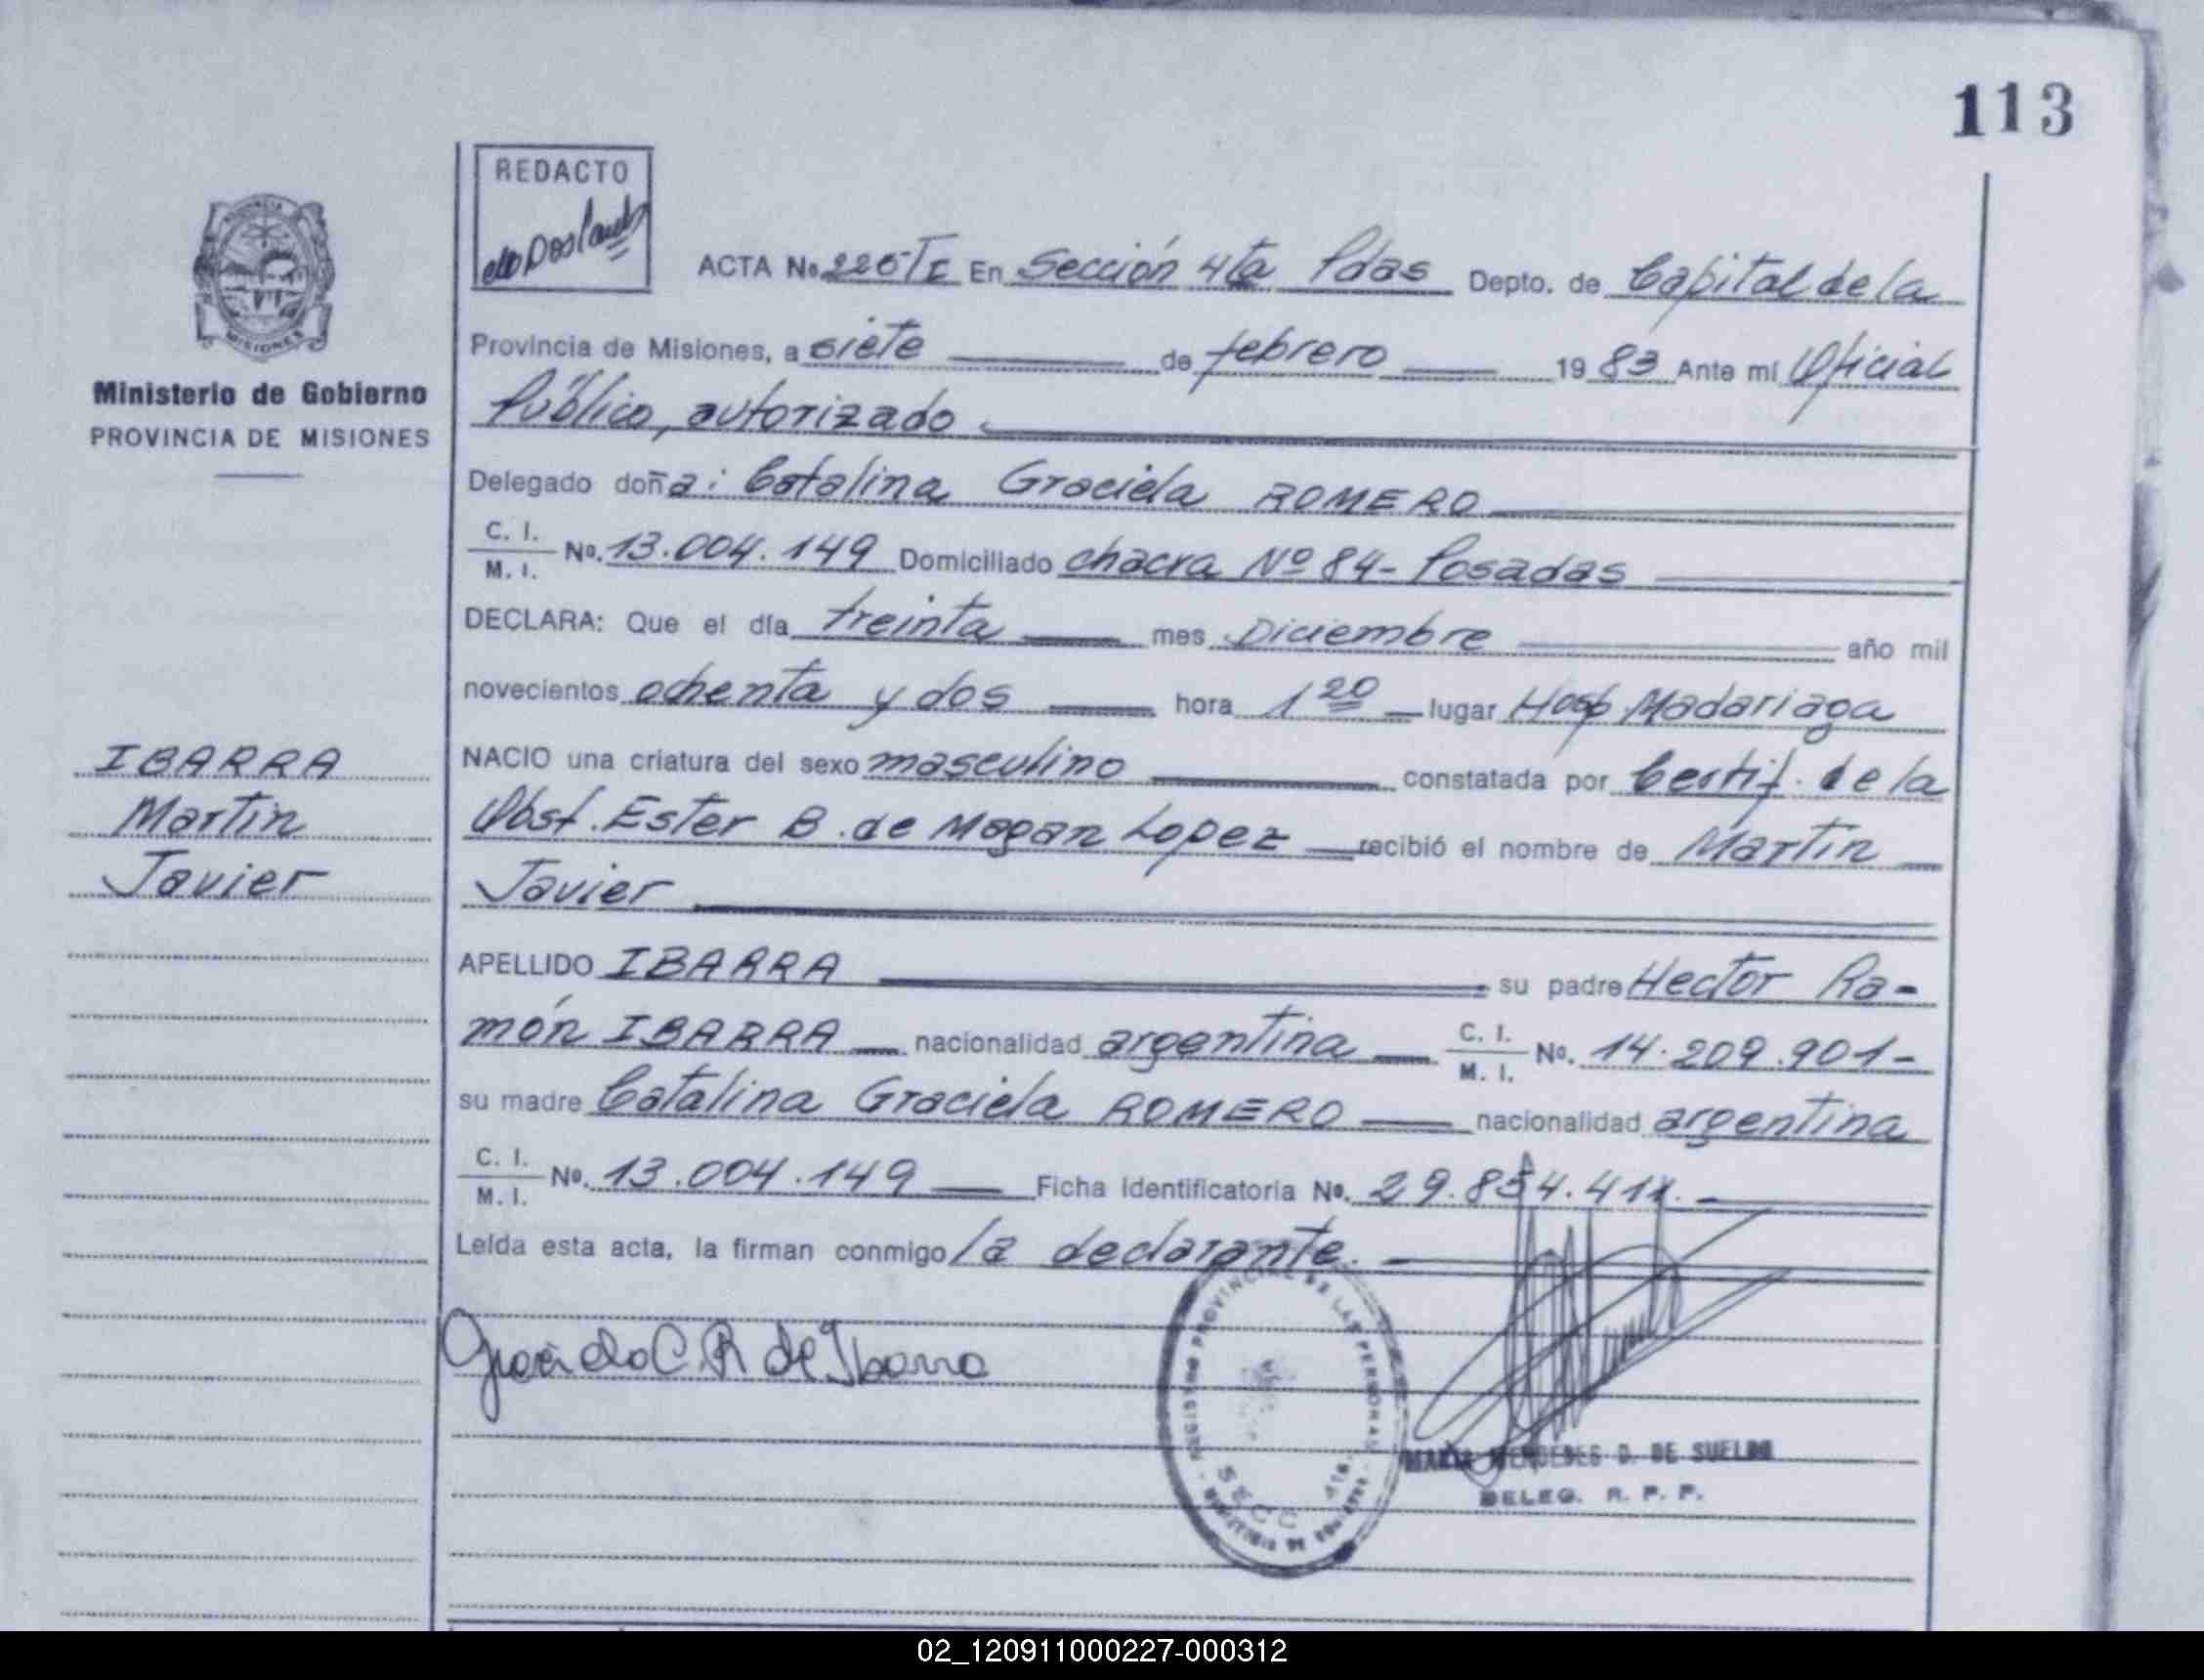 113
REDACTO
ACTA No 225 TI En Sección 4ta Pdas Depto. de Capital de la
Provincia de Misiones, a siete de febrero 1983 Ante mí Oficial
Público, autorizado
Ministerio de Gobierno
PROVINCIA DE MISIONES
Delegado doña: Catalina Graciela ROMERO
C. I.
M. I.
No. 13.004.149 Domiciliado chacra Nº 84 - Posadas
DECLARA: Que el día treinta mes Diciembre año mil
novecientos ochenta y dos hora 1 20 lugar Hosp Madariaga
IBARRA
Martin
Javier
NACIO una criatura del sexo masculino constatada por Certif. de la
Obst. Ester B. de Magan Lopez recibió el nombre de Martin
Javier
APELLIDO IBARRA su padre Hector Ra-
món IBARRA nacionalidad argentina C. I. M. I. No. 14.209.901-
su madre Catalina Graciela ROMERO nacionalidad argentina
C. I.
M. I.
No. 13.004.149 Ficha Identificatoria No. 29.834.411.
Leída esta acta, la firman conmigo la declarante.
Graciela C. R de Ibarra
REGISTRO PROVINCIAL DE LAS PERSONAS
SECC 4ta
MARIA MERCEDES D. DE SUELDO
DELEG. R. P. P.
02_120911000227-000312